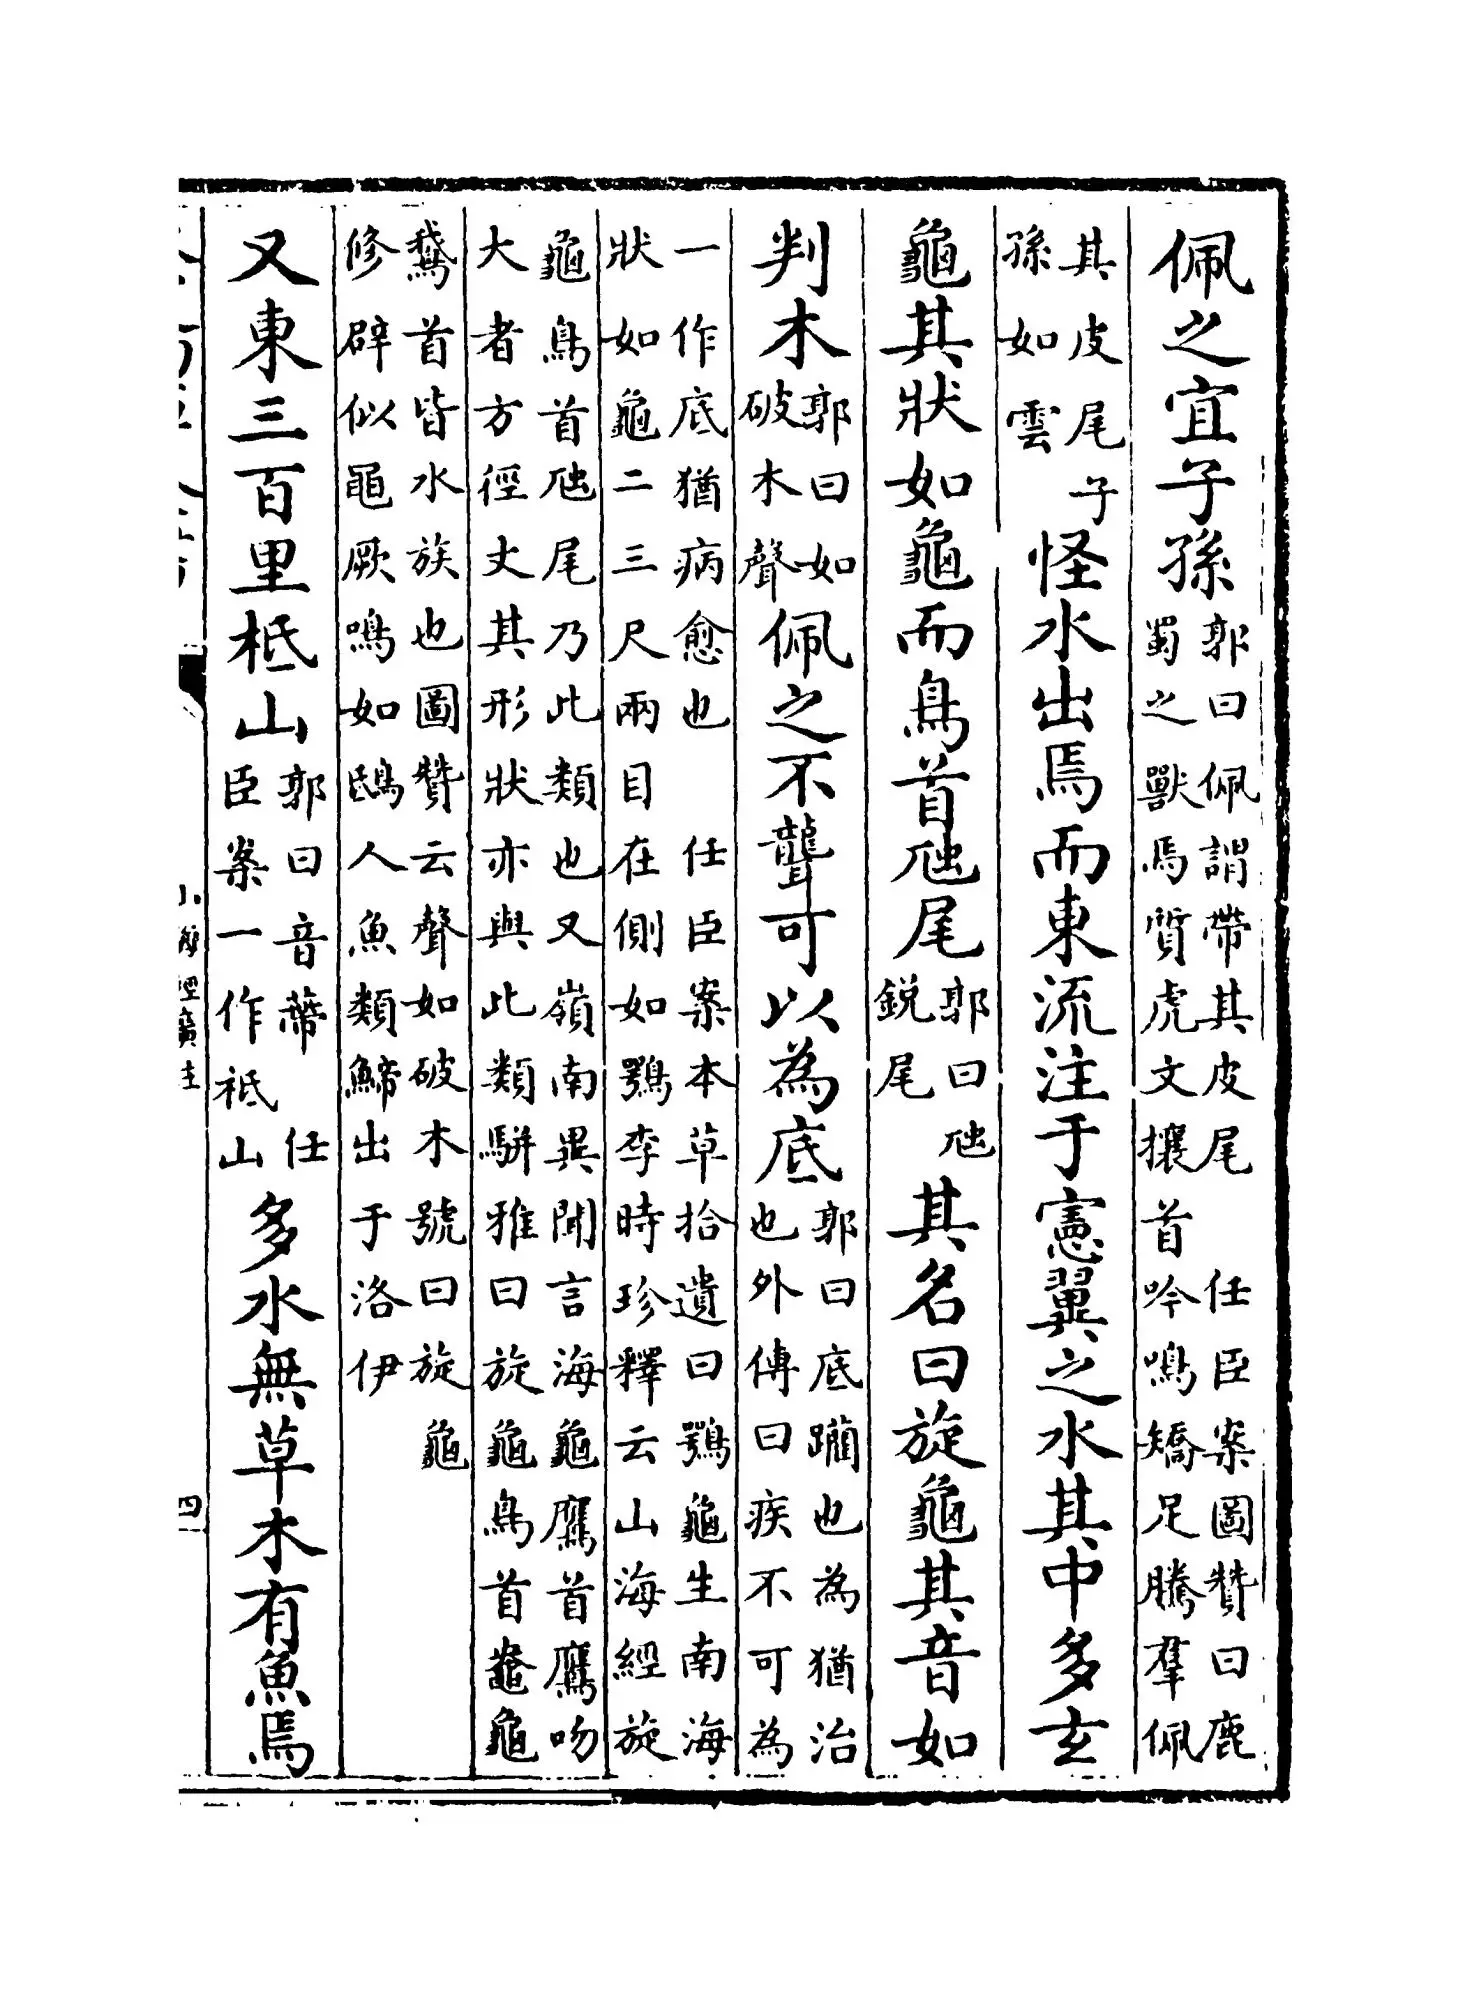 佩之宜子孫郭曰佩謂帶其皮尾　任臣案圖贊曰鹿
蜀之獸馬質虎文攘首吟鳴矯足騰羣佩
其皮尾子
孫如雲
怪水出焉而東流注于憲翼之水其中多玄
龜其狀如龜而鳥首虺尾郭曰虺
銳尾
其名曰旋龜其音如
判木郭曰如
破木聲
佩之不聾可以為底郭曰底躪也為猶治
也外傳曰疾不可為
一作底猶病愈也　任臣案本草拾遺曰鶚龜生南海
狀如龜二三尺兩目在側如鶚李時珍釋云山海經旋
龜鳥首虺尾乃此類也又嶺南異聞言海龜鷹首鷹吻
大者方徑丈其形狀亦與此類駢雅曰旋龜鳥首鼈龜
鵞首皆水族也圖贊云聲如破木號曰旋龜
修辟似黽厥鳴如鴟人魚類鯑出于洛伊
又東三百里柢山郭曰音蔕　任
臣案一作祗山
多水無草木有魚焉
四